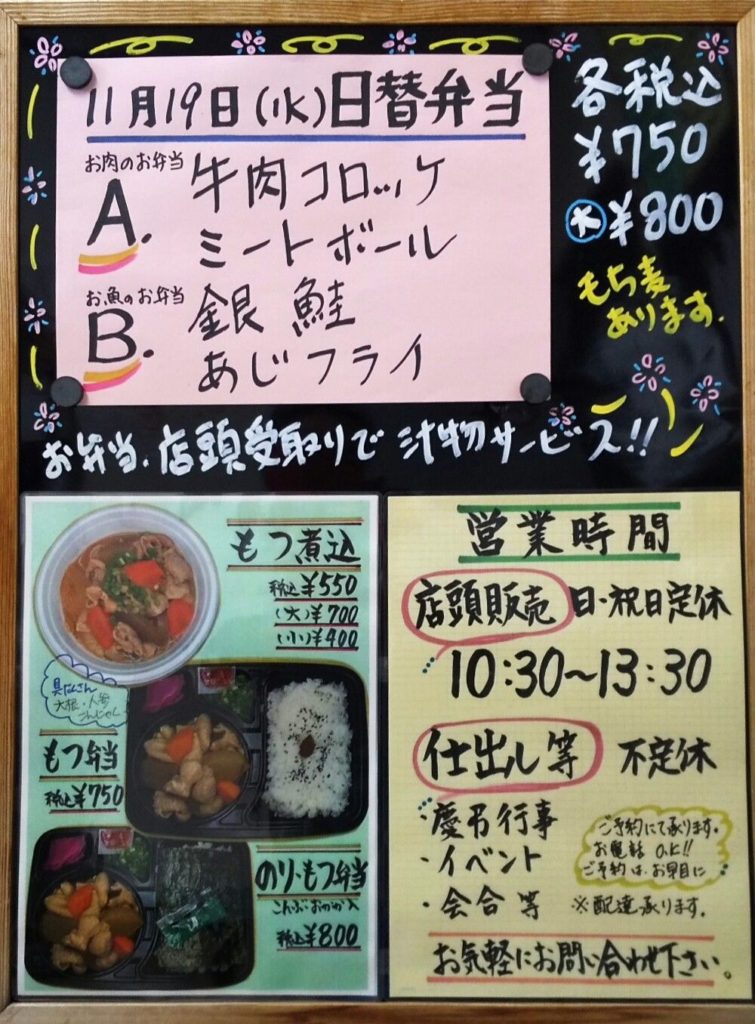 11月19日(水)日替弁当
お肉のお弁当
A. 牛肉コロッケ
ミートボール
お魚のお弁当
B. 銀鮭
あじフライ
各税込
¥750
大¥800
もち麦
あります.
お弁当、店頭受取りで汁物サービス!!
もつ煮込
税込¥550
(大)¥700
(小)¥400
具だくさん
大根・人参
こんにゃく
もつ弁当
税込¥750
のり・もつ弁当
こんぶ・おかか入
税込¥800
営業時間
店頭販売 日・祝日定休
10:30~13:30
仕出し等 不定休
・慶弔行事
・イベント
・会合等
ご予約にて承ります.
お電話OK!!
ご予約は、お早目に
※配達承ります.
お気軽にお問い合わせ下さい。